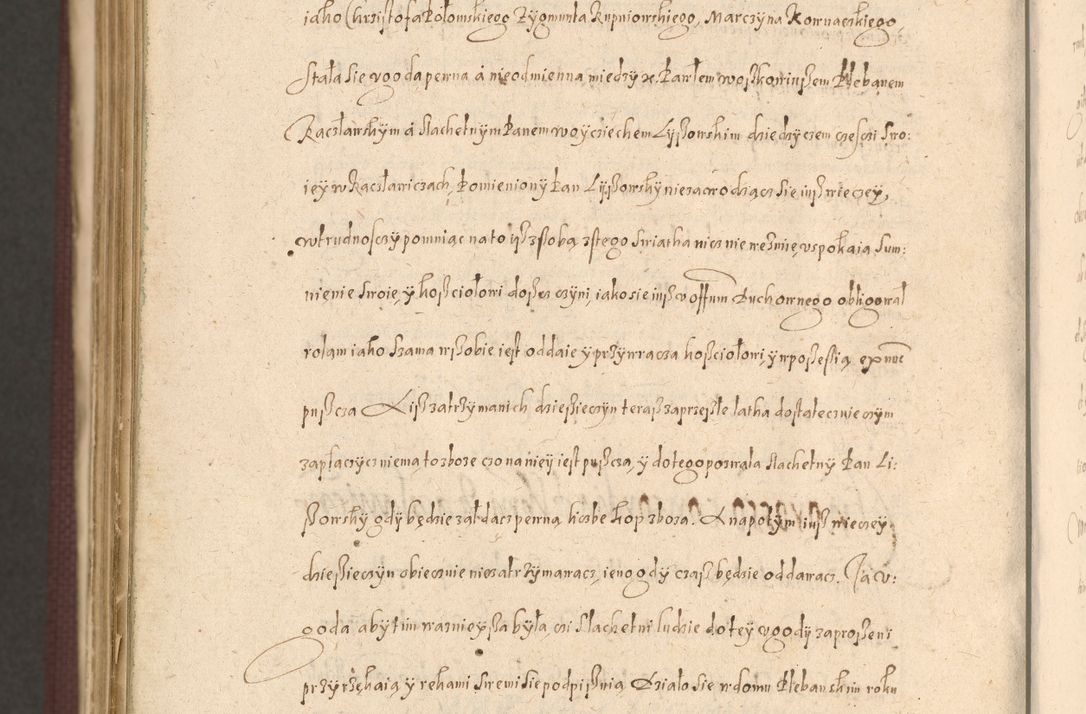 iako Chrzistofa Kołomskiego Zygmunta Rupniowskiego, Marczyna Kownaczkiego,
Stała sie vgoda pewna á nieodmienna miedzy x. Pawłem woskowiußem Plebanem
Raczławskÿm á slachetnÿm Panem woÿcziechem Lyßowskim dziedzyczem częsczi swo:
ieÿ w Raczławiczach, Pomienionÿ Pan Lÿßowskÿ niezawodzącz sie iuß wieczeÿ,
w trudnosczÿ pomniąc na to yß z sobą z tego swiatha nicz nie wezmię, vspokaia sum:
nienie swoie, ÿ kosciołowi dosicz czÿni, iako sie iuß w offum Duchownego obligował
rolam iako szama w sobie iest oddaie ÿ przÿwracza kosciołowi, ÿ w possessią ex nunc
pußcza A iß zatrzÿmanich dziesieczÿn teraß za przeszle latha dostatecznie czÿm
zapłaczÿcz niema to zboze czo na nieÿ iest pußcza, ÿ do tego pozwala slachetnÿ Pan Li:
ßowskÿ gdÿ będzie ząldacz pewną liczbe kop zboza. A napotÿm iuß wieczeÿ
dziesieczÿn obiecznie niezatrzÿmawacz, ieno gdÿ czaß będzie oddawacz. Ta v:
goda abÿ tim waznieÿßa była, czi slachetni ludzie do teÿ vgodÿ zaproßeni
przÿrzękaią ÿ rekami swemi sie podpißuią Działo sie w domu Plebanskim roku